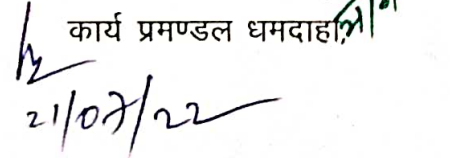 कार्य प्रमण्डल धमदाहा
21/07/22